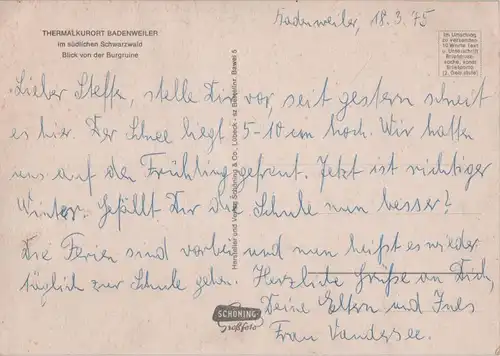 THERMALKURORT BADENWEILER
im südlichen Schwarzwald
Blick von der Burgruine
Badenweiler, 18.3.75
Im Umschlag
zu versenden
10 Worte Text
u. Unterschrift
Briefdruck-
sache, sonst
Briefporto
(s. Gebührenh.)
Lieber Steffen, stelle Dir vor, seit gestern schneit
es hier. Der Schnee liegt 5-10 cm hoch. Wir hatten
uns auf den Frühling gefreut. Jetzt ist richtiger
Winter. Gefällt Dir die Schule nun besser?
Die Ferien sind vorbei und nun heißt es wieder
täglich zur Schule gehen. Herzliche Grüße an Dich,
Deine Eltern und Ines
Frau Vandersee.
Hersteller und Verlag Schöning & Co., Lübeck - sz Bestellnr. Bawei 5
SCHÖNING
Großfoto